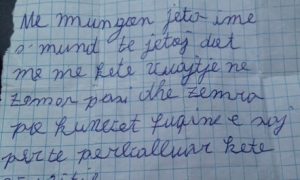 Me mungon jeta ime
s mund te jetoj dot
me me kete vuajtje ne
zemer pasi dhe zemra
po kursecet fuqine e saj
per te perballuar kete